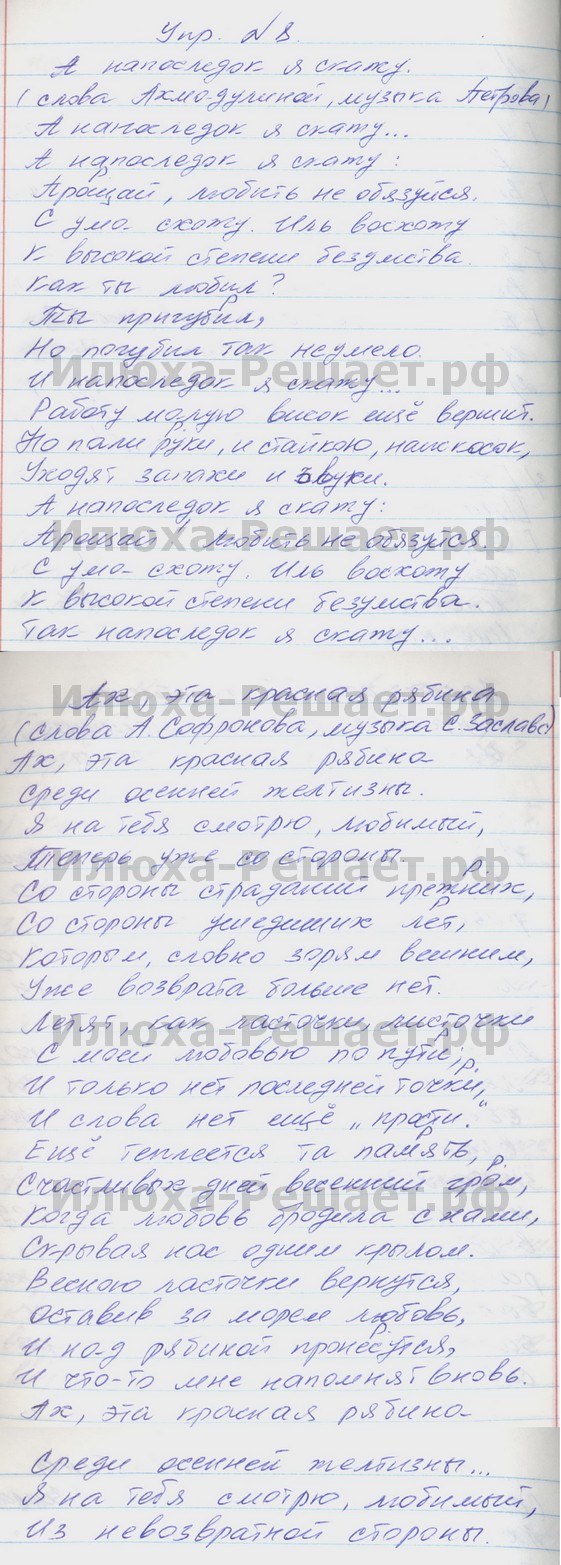 Упр. №8.
А напоследок я скажу.
(слова Ахмодулиной, музыка Петрова)
А напоследок я скажу...
А напоследок я скажу:
Прощай, любить не обязуйся.
С ума схожу. Иль восхожу
К высокой степени безумства.
Как ты любил?
Ты пригубил,
Но погубил так неумело.
И напоследок я скажу...
Илюха-Решает.рф
Работу малую висок ещё вершит.
Но пали руки, и стайкою, наискосок,
Уходят запахи и звуки.
А напоследок я скажу:
Прощай, любить не обязуйся.
Илюха-Решает.рф
С ума схожу. Иль восхожу
К высокой степени безумства.
Так напоследок я скажу...
Ах, эта красная рябина
Илюха-Решает.рф
(слова А. Софронова, музыка С. Заславс)
Ах, эта красная рябина
Среди осенней желтизны.
Я на тебя смотрю, любимый,
Теперь уже со стороны.
Илюха-Решает.рф
Со стороны страданий прежних, р.
Со стороны ушедших лет, р
Которым, словно зорям вешним,
Уже возврата больше нет.
Летят, как ласточки, листочки
Илюха-Решает.рф
С моей любовью по пути, р
И только нет последней точки, р.
И слова нет ещё „прости."
Ещё теплеется та память, р
Счастливых дней весенний гром, р.
Илюха-Решает.рф
Когда любовь бродила с нами,
Скрывая нас одним крылом.
Весною ласточки вернутся,
Оставив за морем любовь,
И над рябиной пронесутся, р
И что-то мне напомнят вновь.
Ах, эта красная рябина
Среди осенней желтизны...
Я на тебя смотрю, любимый,
Из невозвратной стороны.